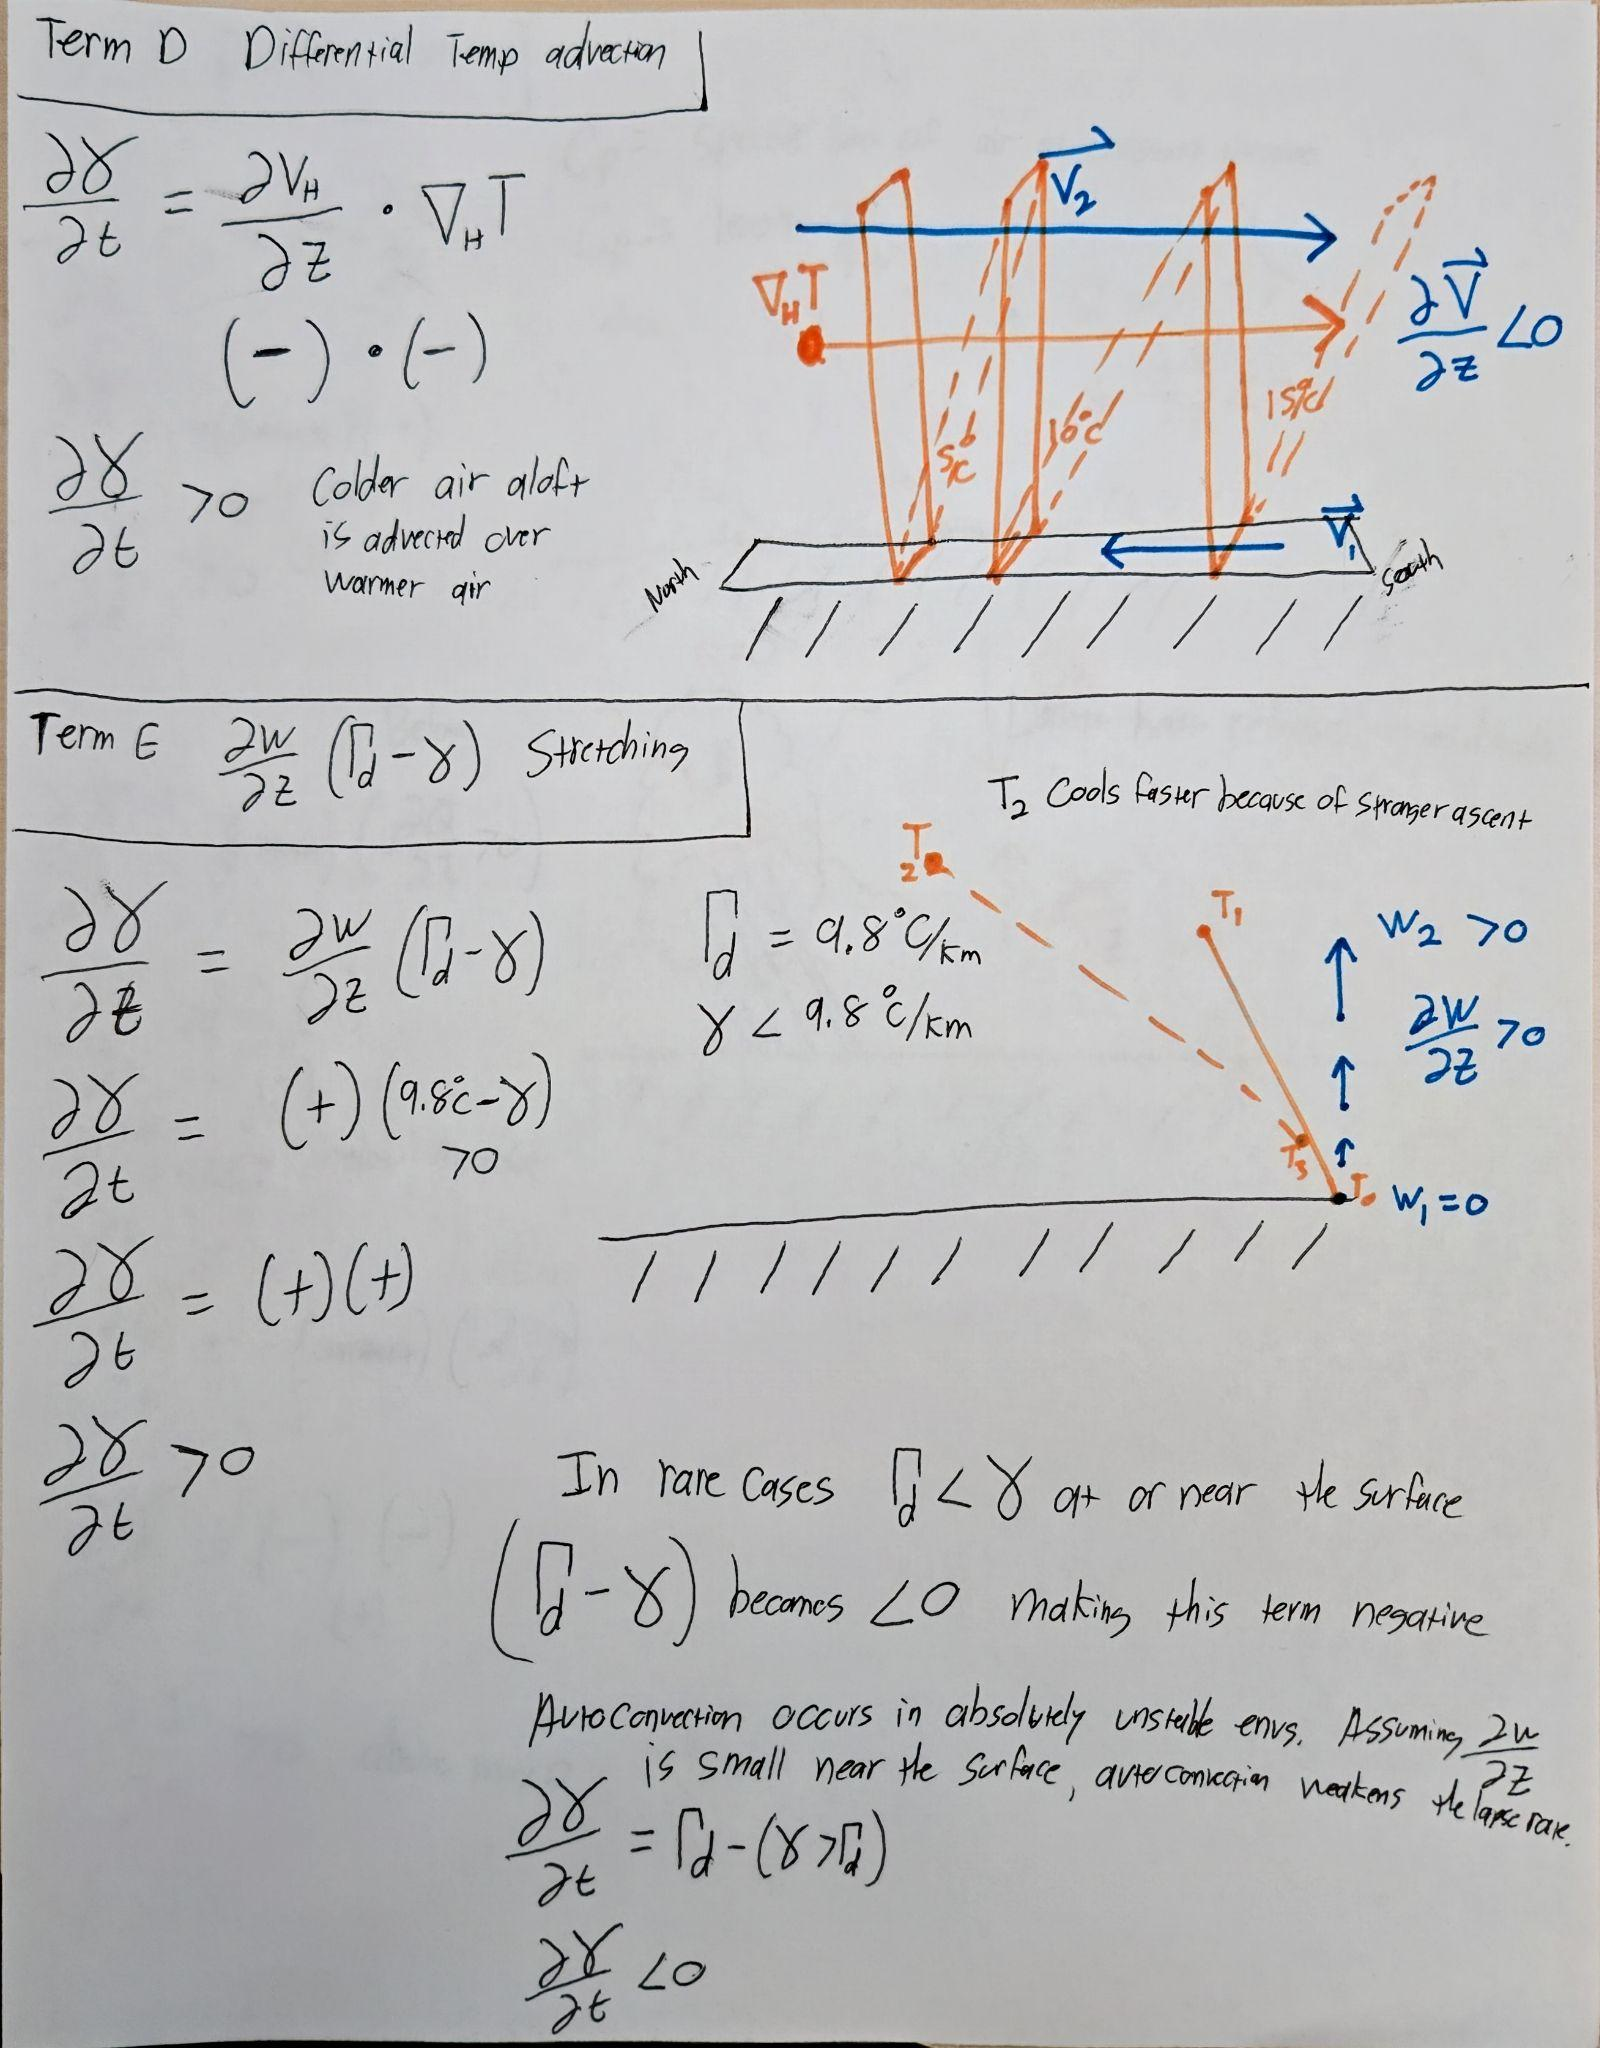 Term D Differential Temp advection
∂γ/∂t = ∂V_H/∂z · ∇_H T
(-) · (-)
∂γ/∂t >0 Colder air aloft
is advected over
warmer air
V₂
∇_H T
∂V/∂z <0
5°C
10°C
15°C
V₁
North
South
Term E ∂w/∂z (Γd-γ) Stretching
T₂ Cools faster because of stronger ascent
∂γ/∂t = ∂w/∂z (Γd-γ)
Γd = 9.8°C/km
γ < 9.8°C/km
T₂
T₁
W₂ >0
∂w/∂z >0
T₃
T₀
W₁=0
∂γ/∂t = (+) (9.8°C-γ)
>0
∂γ/∂t = (+)(+)
∂γ/∂t >0
In rare cases Γd < γ at or near the surface
(Γd - γ) becomes <0 making this term negative
Autoconvection occurs in absolutely unstable envs. Assuming ∂w/∂z
is small near the surface, autoconvection weakens the lapse rate.
∂γ/∂t = Γd-(γ>Γd)
∂γ/∂t <0